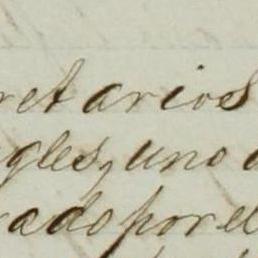 retarios
gles, uno
ado por el